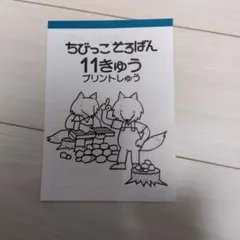 ちびっこ そろばん
11きゅう
プリントしゅう